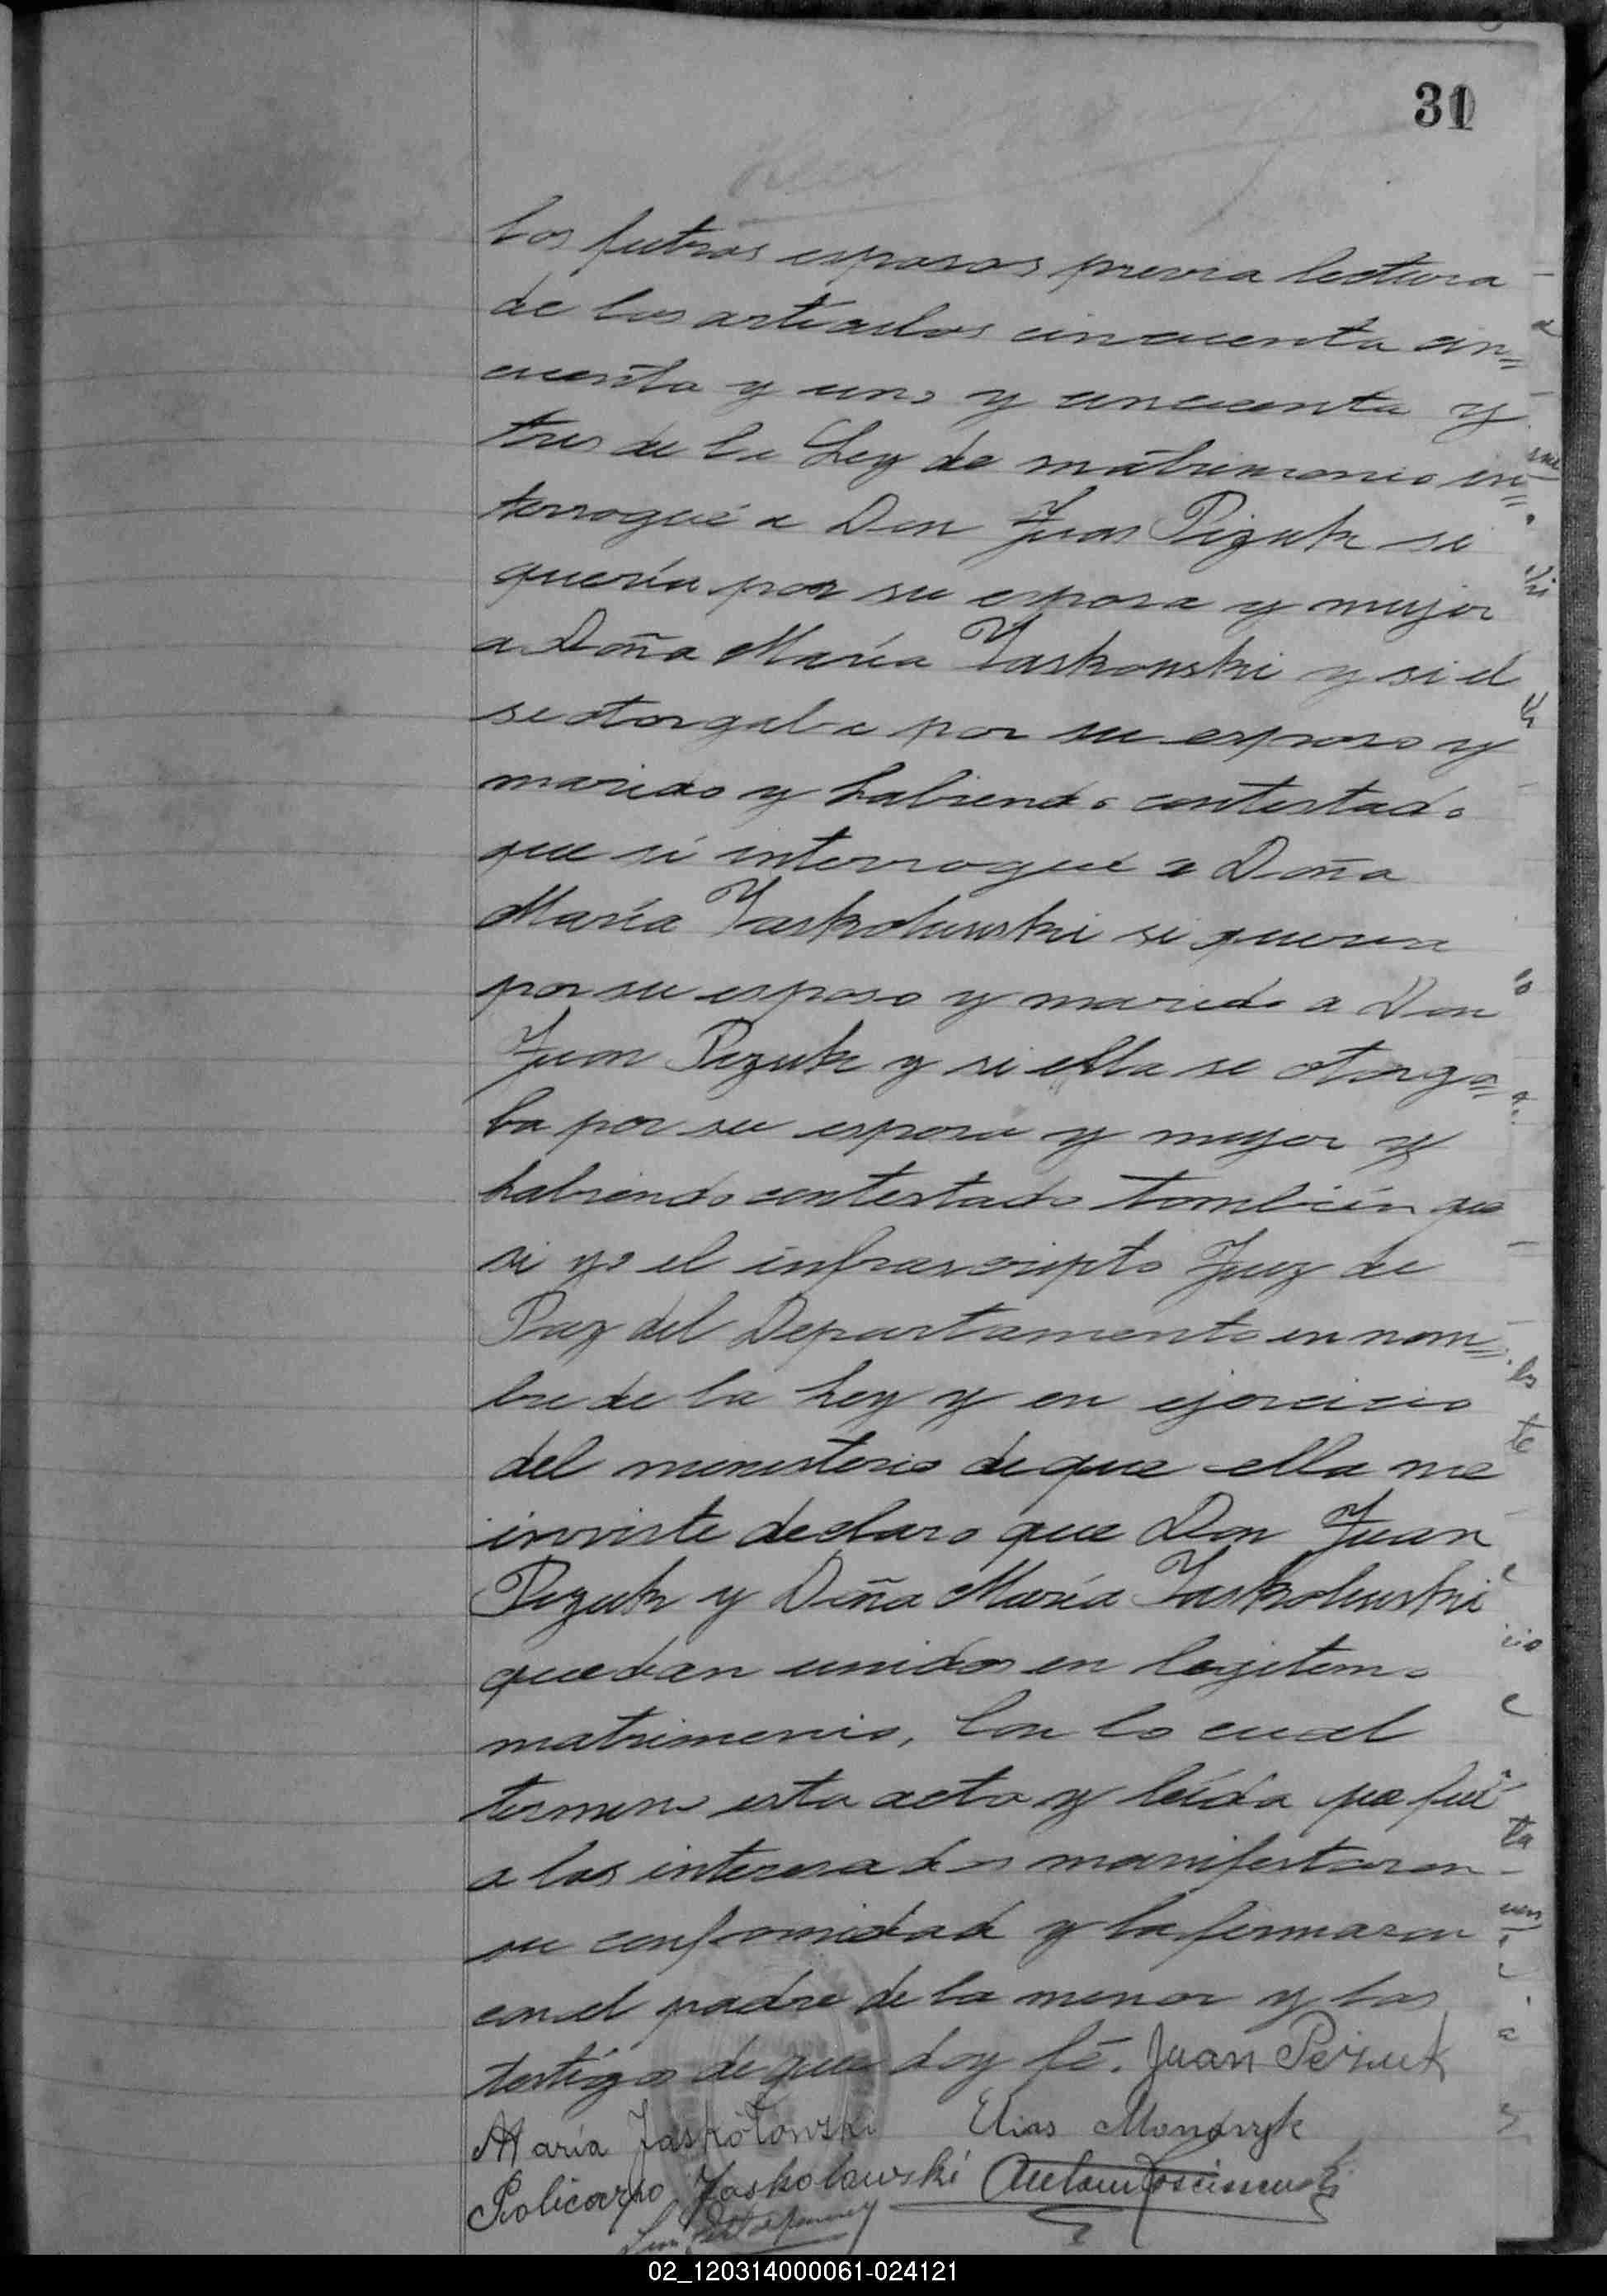 31
los futuros esposos previa lectura
de los articulos cincuenta cin=
cuenta y uno y cincuenta y
tres de la Ley de matrimonio in=
terrogué a Don Juan Pizuk si
quería por su esposa y mujer
a Doña María Jaskowski y si el
se otorgaba por su esposo y
marido y habiendo contestado
que sí interrogué a Doña
María Jaskolowski si queria
por su esposo y marido a Don
Juan Pezuk y si ella se otorga=
ba por su esposa y mujer y
habiendo contestado también que
si yo el infrascripto Juez de
Paz del Departamento en nom=
bre de la Ley y en ejercicio
del ministerio de que ella me
inviste declaro que Don Juan
Pezuk y Doña María Jaskolowski
quedan unidos en legitimo
matrimonio, Con lo cual
termino esta acta y leída que fué
a los interesados manifestaron
su conformidad y la firmaron
con el padre de la menor y los
testigos de que doy fé. Juan Pezuk
María Jaskółowski Elias Mondryk
Policarpo Joskolowski
02_120314000061-024121